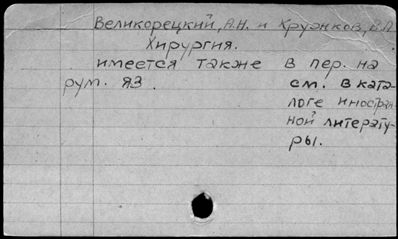 Великорецкий, А.Н. и Кружков, В.А
Хирургия.
имеется также в пер. на
рум. яз. см. в ката-
логе иностран
ной литерату-
ры.